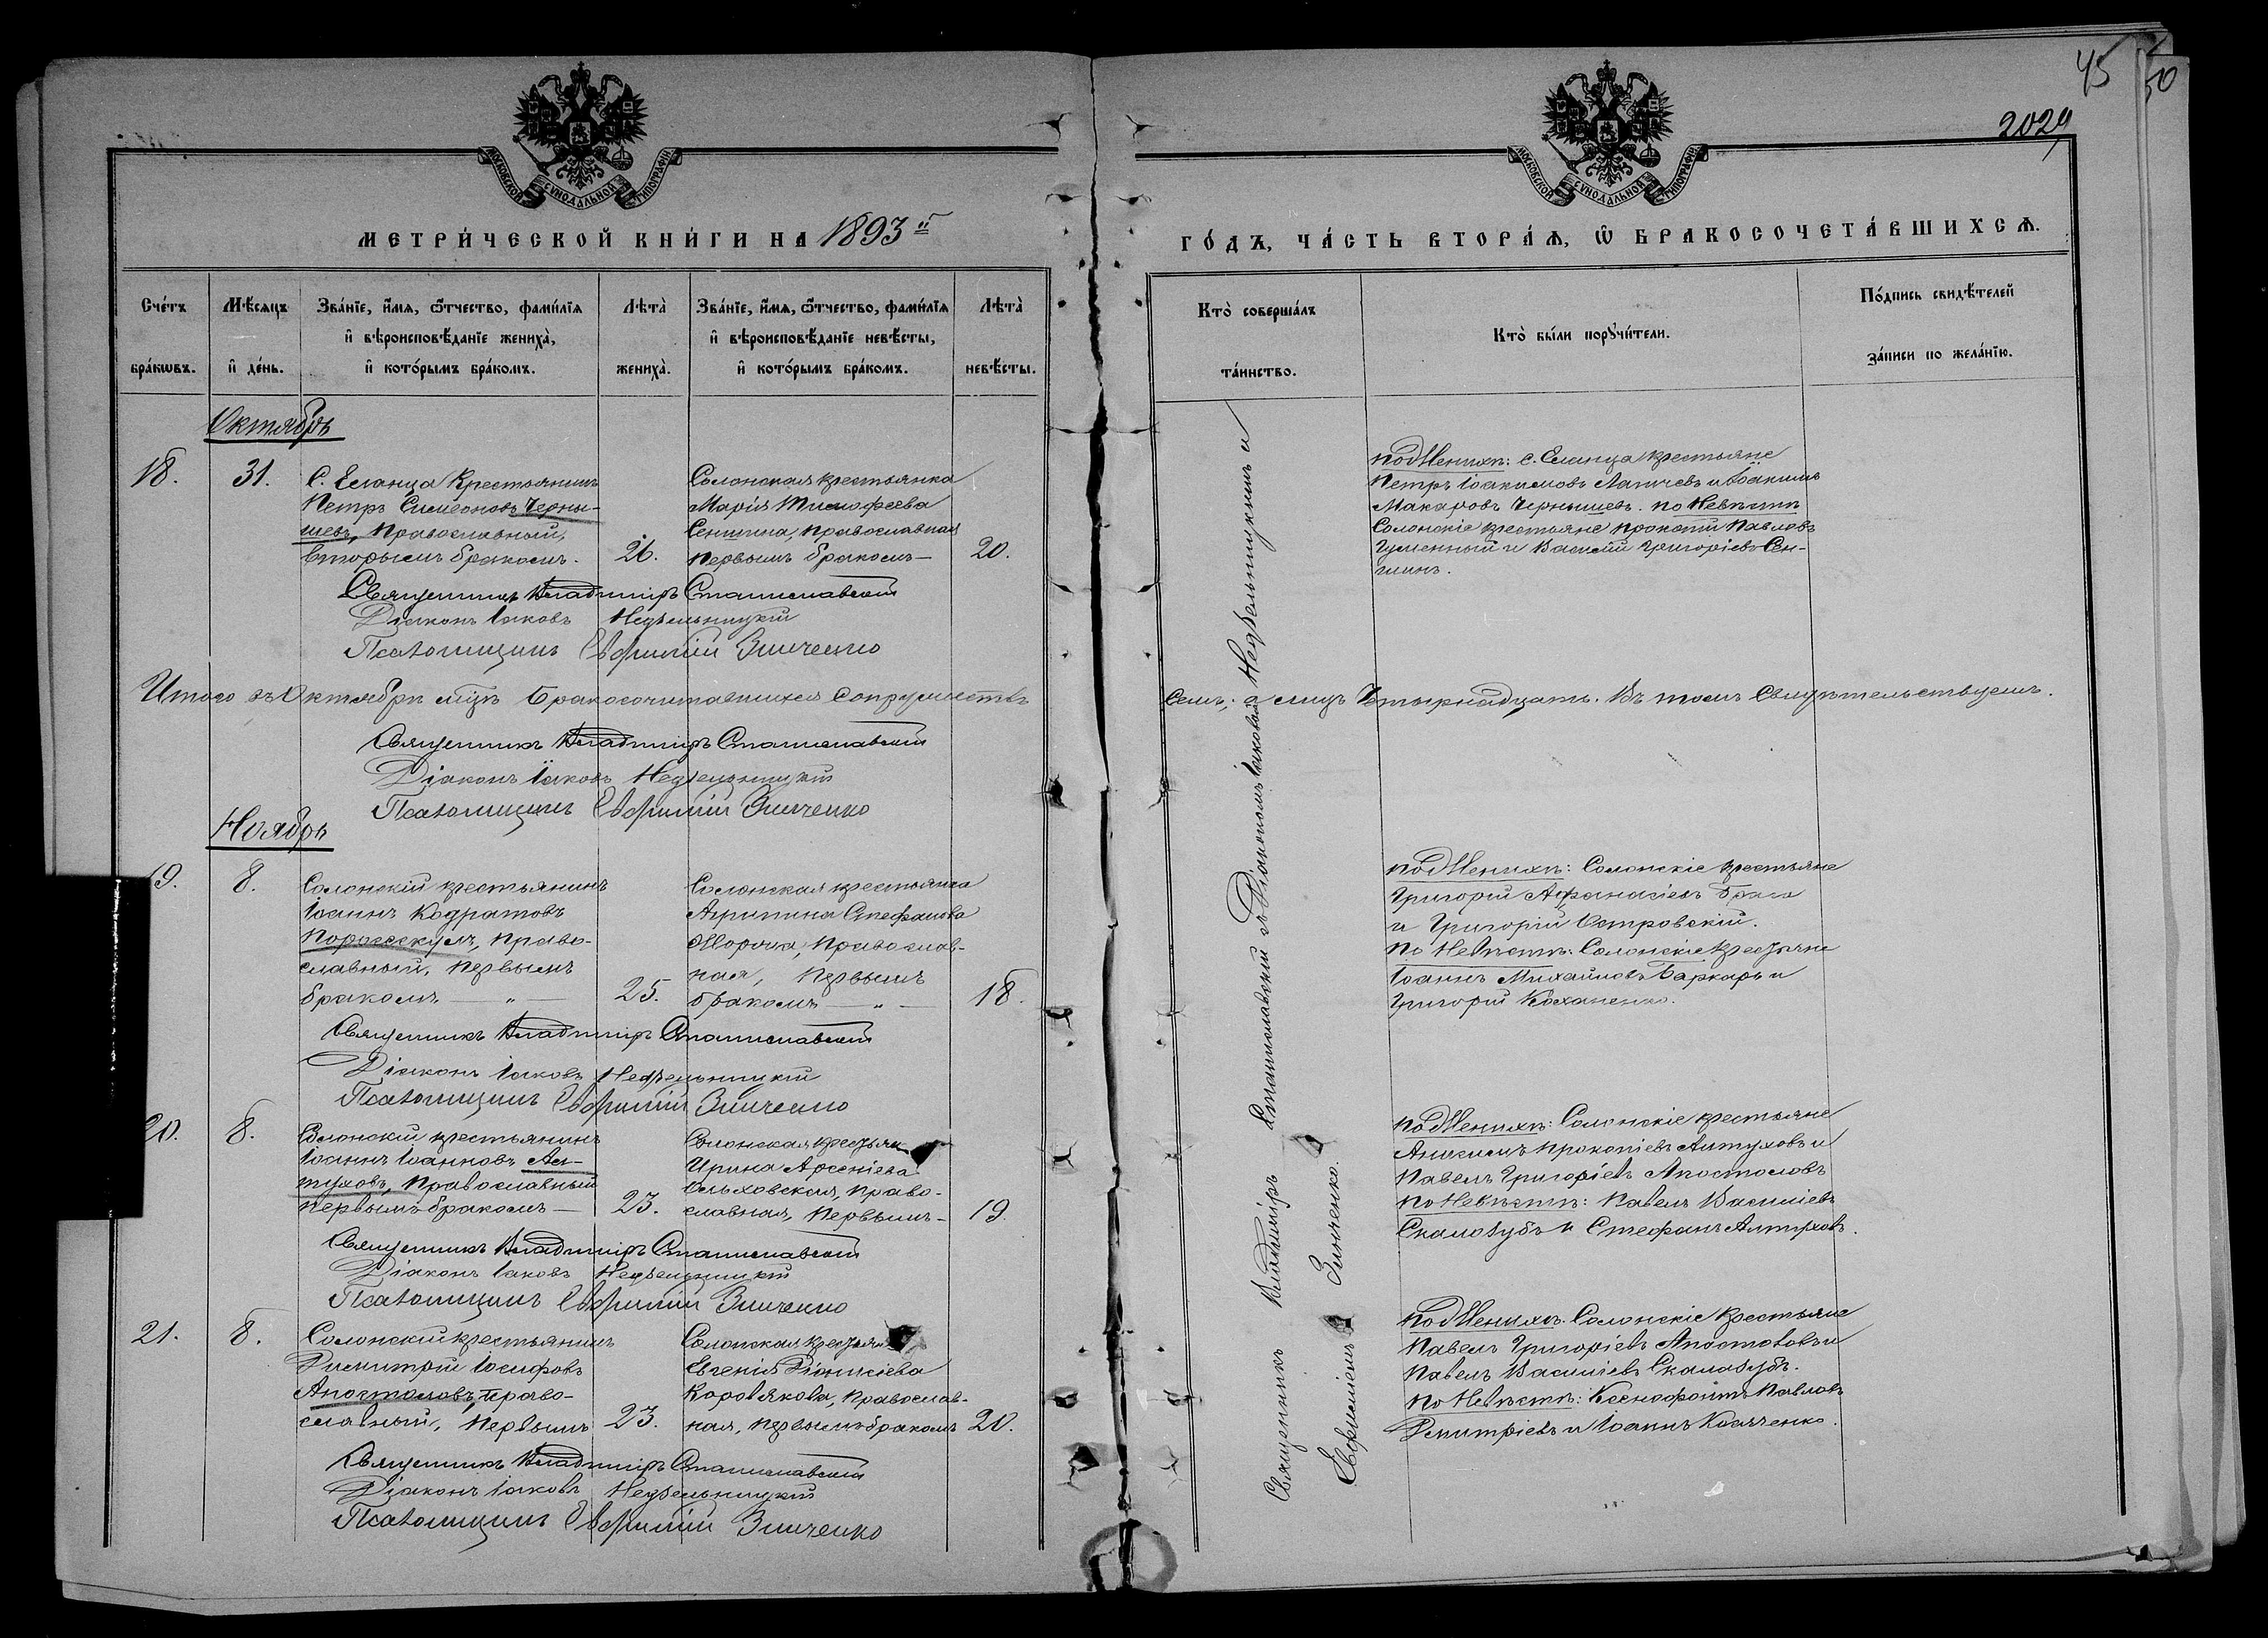 45
50
2029
МОСКОВСКОЙ СѴНОДАЛЬНОЙ ТИПОГРАФІИ
МОСКОВСКОЙ СѴНОДАЛЬНОЙ ТИПОГРАФІИ
МЕТРИ́ЧЕСКОЙ КНИ́ГИ НА 1893 й
ГО́ДЪ, ЧА́СТЬ ВТОРА́Ѧ, Ѡ҆ БРАКОСОЧЕТА́ВШИХСѦ.
Сче́тъ бра́кѡвъ.
Мѣ́сѧцъ и҆ де́нь.
Зва́нїе, и҆́мѧ, ѻ҆́тчество, фами́лїѧ
и҆ вѣроисповѣ́данїе жениха̀,
и҆ кото́рымъ бра́комъ.
Лѣта̀ жениха̀.
Зва́нїе, и҆́мѧ, ѻ҆́тчество, фами́лїѧ
и҆ вѣроисповѣ́данїе невѣ́сты,
и҆ кото́рымъ бра́комъ.
Лѣта̀ невѣ́сты.
Кто̀ соверша́лъ та́инство.
Кто̀ бы́ли порꙋчи́тели.
По́дпись свидѣ́телей за́писи по жела́нїю.
Октябрь
18.
31.
С. Еланца Крестьянинъ
Петръ Симеоновъ Черны-
шевъ, Православный,
вторымъ бракомъ.
26.
Солонская крестьянка
Марія Тимофеева
Сеншина, православная
первымъ бракомъ —
20.
по Женихѣ: с. Еланца крестьяне
Петръ Іоакимовъ Лапчевъ и Іоакимъ
Макаровъ Чернышевъ. по Невѣстѣ
Солонскіе крестьяне Прокопій Павловъ
Гуменный и Василій Григоріевъ Сен-
шинъ.
Священникъ Владиміръ Станиславскій
Діаконъ Іаковъ Недѣльницкій
Псаломщикъ Евфимій Зинченко
Итого въ Октябрѣ м-цѣ бракосочитавшихся супружествъ
Семь, а лицъ Четырнадцать. Въ томъ Свидѣтельствуемъ.
Священникъ Владиміръ Станиславскій
Діаконъ Іаковъ Недѣльницкій
Псаломщикъ Евфимій Зинченко
Ноябрь
19.
8.
Солонскій крестьянинъ
Іоаннъ Кодратовъ
православный, первымъ
бракомъ — „ —
25.
Солонская крестьянка
Агрипина Стефанова
Мороча, православ-
ная, первымъ
бракомъ — „ —
18.
по Женихѣ: Солонскіе крестьяне
Григорій Афанасіевъ
и Григорій Островскій.
по Невѣстѣ: Солонскіе крестьяне
Іоаннъ Михайловъ Баркарь и
Григорій Коханенко.
Священникъ Владиміръ Станиславскій
Діаконъ Іаковъ Недѣльницкій
Псаломщикъ Евфимій Зинченко
20.
8.
Солонскій крестьянинъ
Іоаннъ Іоанновъ Ал-
туховъ, православный
первымъ бракомъ —
23.
Солонская крестьян
Ирина Арсеніева
Ольховская, право-
славная, первымъ —
19.
по Женихѣ: Солонскіе крестьяне
Анисимъ Прокопіевъ Алтуховъ и
Павелъ Григоріевъ Апостоловъ
по Невѣстѣ: Павелъ Василіевъ
Скалозубъ и Стефанъ Алтуховъ.
Священникъ Владиміръ Станиславскій
Діаконъ Іаковъ Недѣльницкій
Псаломщикъ Евфимій Зинченко
21.
8.
Солонскій крестьянинъ
Димитрій Іосифовъ
Апостоловъ, право-
славный, первымъ
23.
Солонская крестьян
Евгенія Діонисіева
Коровякова, православ-
ная, первымъ бракомъ
20.
по Женихѣ: Солонскіе крестьяне
Павелъ Григоріевъ Апостоловъ и
Павелъ Василіевъ Скалозубъ.
по Невѣстѣ: Ксенофонтъ Павловъ
Димитріевъ и Іоаннъ Косяченко.
Священникъ Владиміръ Станиславскій
Діаконъ Іаковъ Недѣльницкій
Псаломщикъ Евфимій Зинченко
Священникъ Владиміръ Станиславскій съ Діакономъ Іаковомъ Недѣльницкимъ и
Евфиміемъ Зинченко.